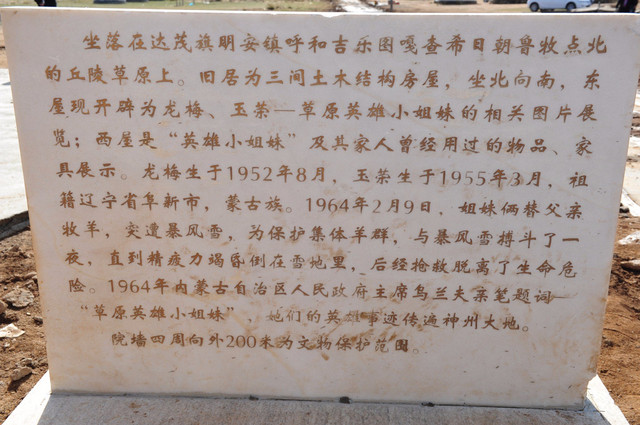 坐落在达茂旗明安镇呼和吉乐图嘎查希日朝鲁牧点北
的丘陵草原上。旧居为三间土木结构房屋，坐北向南，东
屋现开辟为龙梅、玉荣—草原英雄小姐妹的相关图片展
览；西屋是“英雄小姐妹”及其家人曾经用过的物品、家
具展示。龙梅生于1952年8月，玉荣生于1955年3月，祖
籍辽宁省阜新市，蒙古族。1964年2月9日，姐妹俩替父亲
牧羊，突遭暴风雪，为保护集体羊群，与暴风雪搏斗了一
夜，直到精疲力竭昏倒在雪地里，后经抢救脱离了生命危
险。1964年内蒙古自治区人民政府主席乌兰夫亲笔题词—
“草原英雄小姐妹”，她们的英雄事迹传遍神州大地。
院墙四周向外200米为文物保护范围。